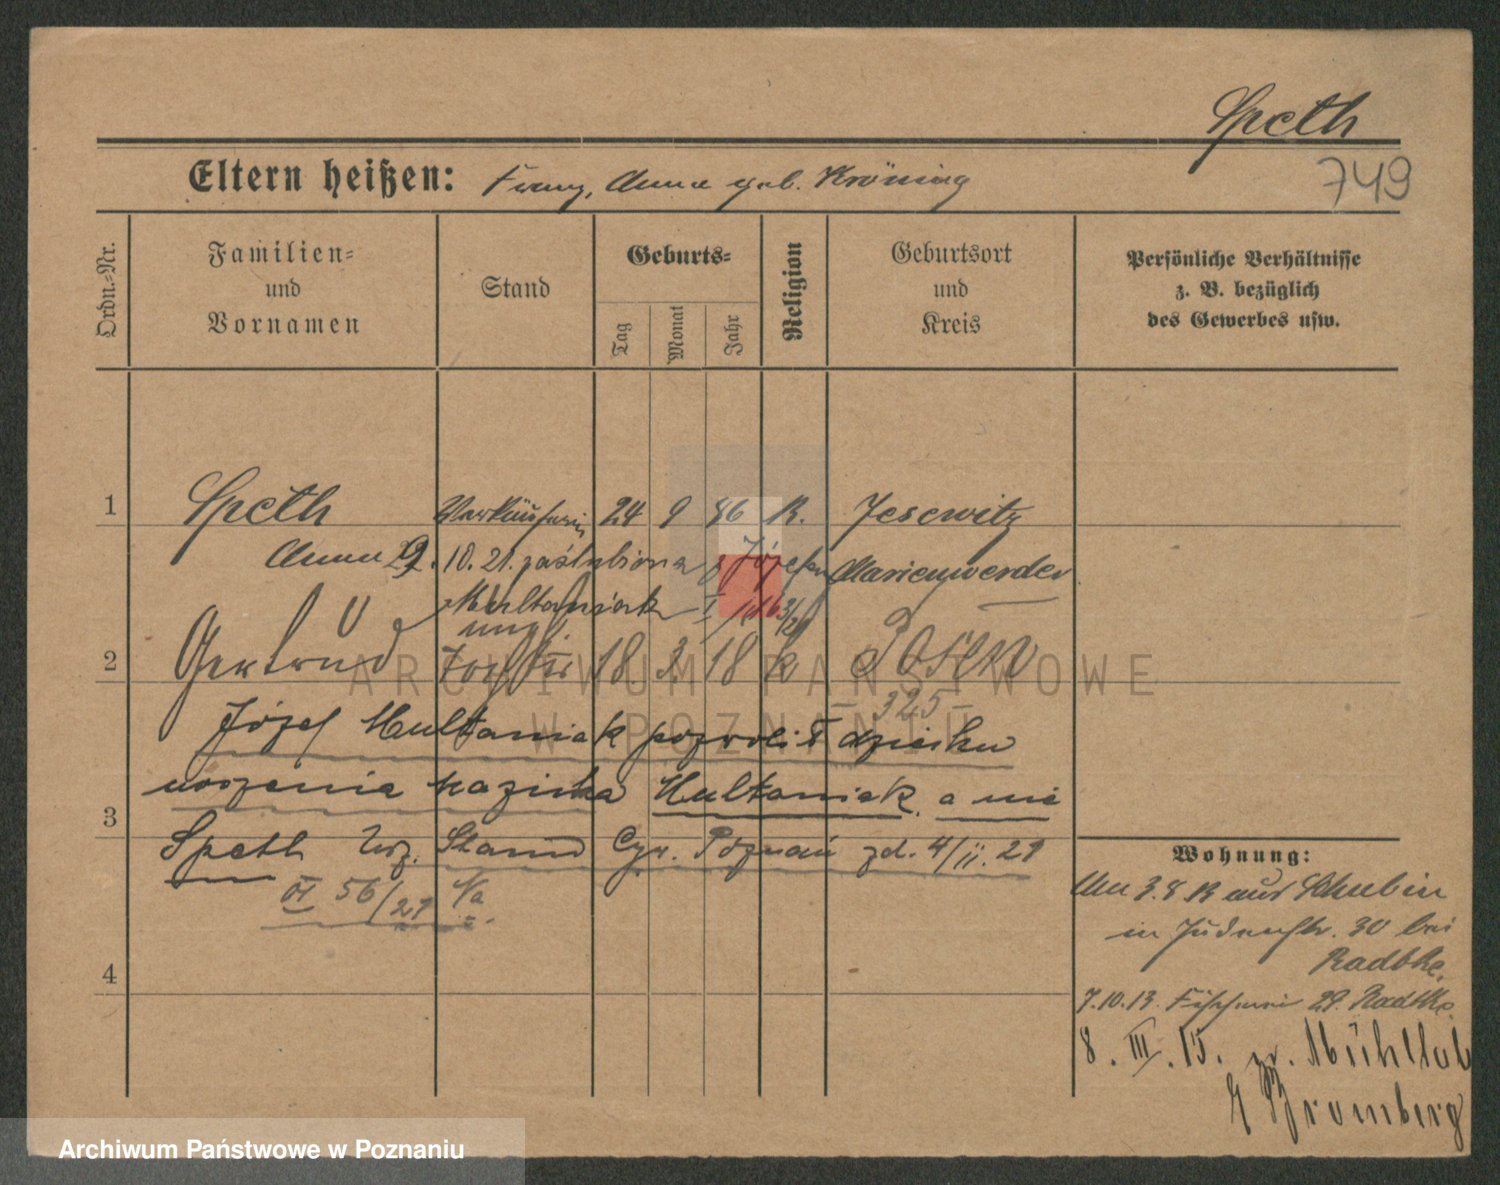 Speth
749
Eltern heißen: Franz, Anna geb. Kröning
Ordn.=Nr.
Familien=
und
Vornamen
Stand
Geburts=
Tag
Monat
Jahr
Religion
Geburtsort
und
Kreis
Persönliche Verhältnisse
z. B. bezüglich
des Gewerbes usw.
1 Speth Verkäuferin 24 9 86 K. Jesewitz
Anna 29. 10. 21. zaślubiona z Józefem Marienwerder
Multaniak
unehl.
2 Gertrud Tochter 18. 2. 18 k Posen
325
Józef Multaniak pozwolił dziecku
noszenia nazwiska Multaniak. a nie
3
Speth Urz. Stanu Cyw. Poznań zd. 4/II. 29
VI 56/29 Va
4
Wohnung:
3.8 13 aus Schubin
in Judenstr. 30 bei
Radtke.
7.10.13. Fischerei 29. Radtke.
8. III. 15. n. Mühltal
Bromberg
ARCHIWUM PAŃSTWOWE
W POZNANIU
Archiwum Państwowe w Poznaniu